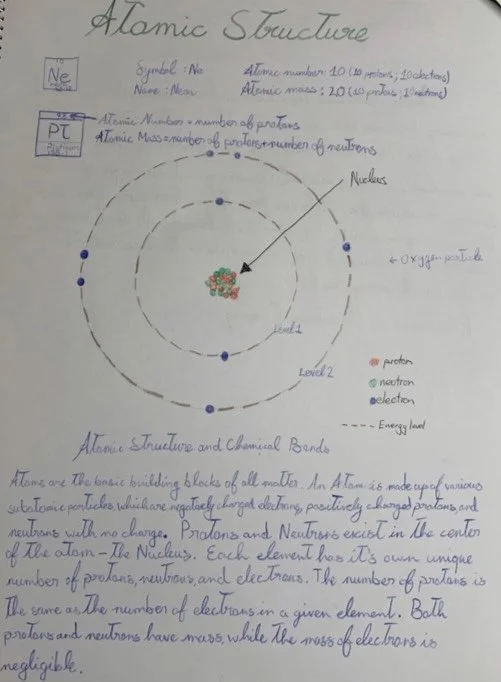 Atomic Structure
Ne
Symbol : Ne
Atomic number: 10 (10 protons; 10 electrons)
Name : Neon
Atomic mass : 20 (10 protons; 10 neutrons)
Pt
Atomic Number = number of protons
Atomic Mass = number of protons + number of neutrons
Nucleus
← Oxygen particle
Level 1
Level 2
proton
neutron
electron
---- Energy level
Atomic Structure and Chemical Bonds
Atoms are the basic building blocks of all matter. An Atom is made up of various
subatomic particles, which are negatively charged electrons, positively charged protons, and
neutrons with no charge. Protons and Neutrons exist in the center
of the atom – the Nucleus. Each element has it's own unique
number of protons, neutrons, and electrons. The number of protons is
the same as the number of electrons in a given element. Both
protons and neutrons have mass, while the mass of electrons is
negligible.